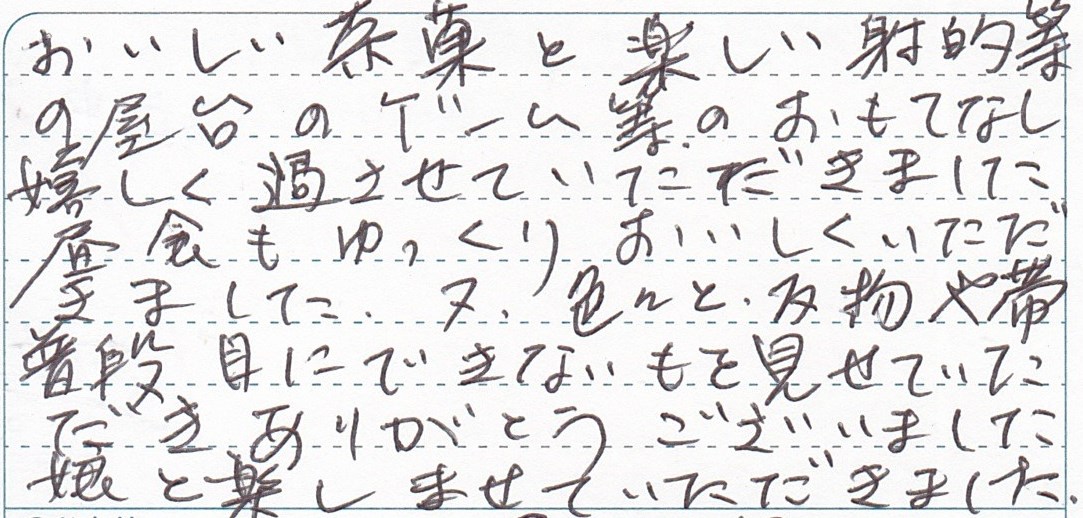 おいしい茶菓と楽しい射的等
の屋台のゲーム等のおもてなし
嬉しく過させていただきました
昼食もゆっくりおいしくいただ
きました.又、色々と、反物や帯
普段目にできないもを見せていた
だきありがとうございました
娘と楽しませていただきました.